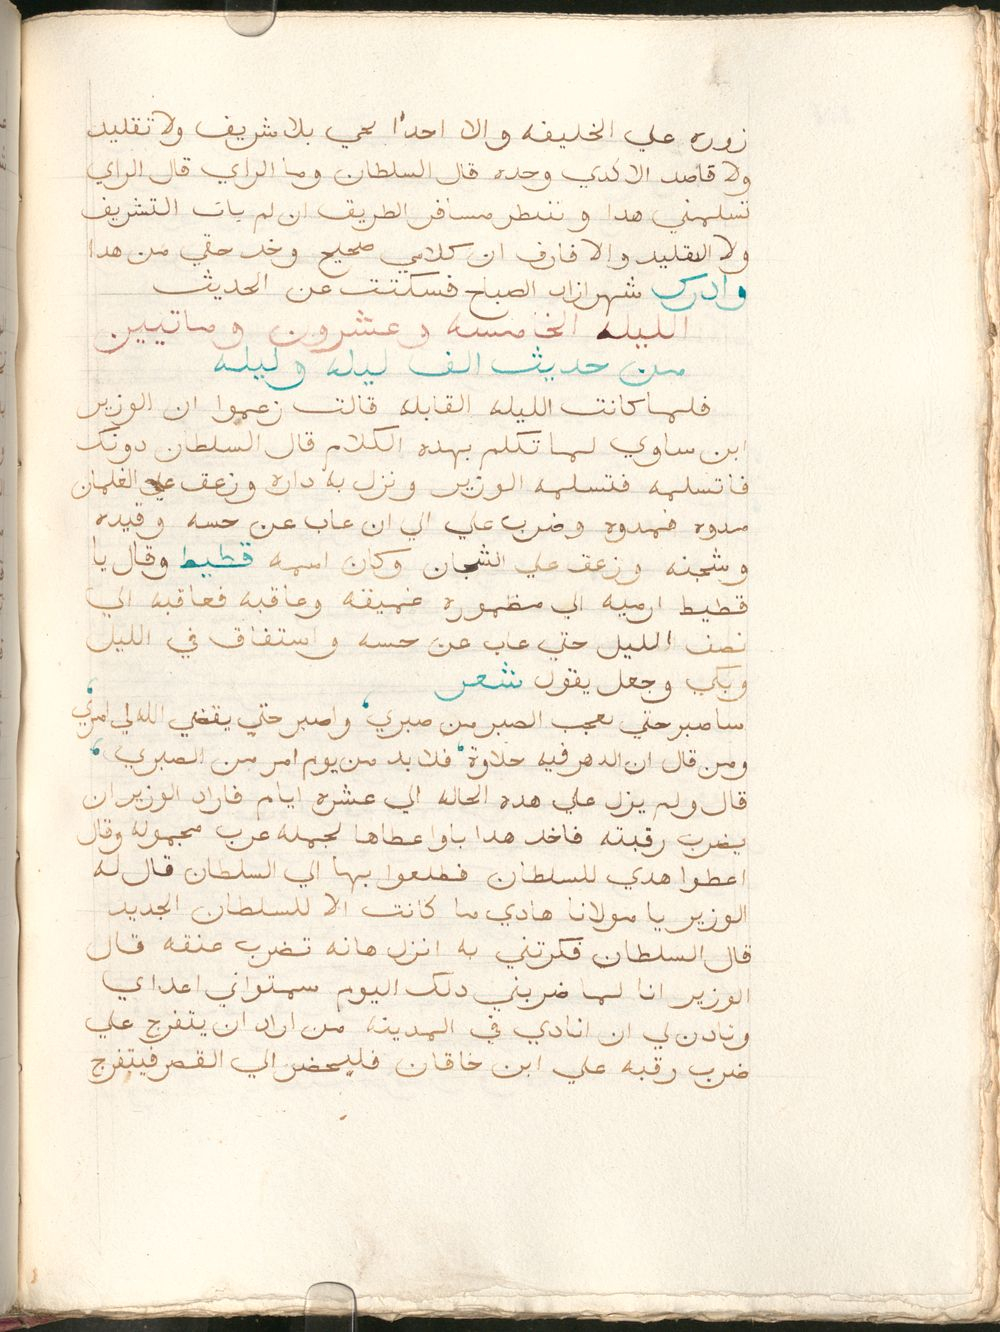 زوره علي الخليفه والا احدا يجي بلا شريف ولا تقليد
ولا قاصد الا كدي وحده قال السلطان وما الراي قال الراي
تسلمني هدا وننتطر مسافر الطريق ان لم يات التشريف
ولا التقليد والا فارف ان كلامي صحيح وخد حقي من هدا
وادرك شهرازاد الصباح فسكتت عن الحديث
الليله الخامسه وعشرون وماتيين
من حديث الف ليله وليله
فلما كانت الليله القابله قالت زعموا ان الوزير
ابن ساوي لما تكلم بهده الكلام قال السلطان دونك
فاتسلمه فتسلمه الوزير ونزل به داره وزعف علي الغلمان
مدوه فمدوه وضرب علي الي ان عاب عن حسه وقيده
وشجنه وزعف علي الشجان وكان اسمه قطيط وقال يا
قطيط ارميه الي مطموره غميقه وعاقبه فعاقبه الي
نصف الليل حتي عاب عن حسه واستفاق في الليل
وبكي وجعل يقول شعر
ساصبر حتي يعجب الصبر من صبري، واصبر حتي يقضي الله لي امري،
ومن قال ان الدهر فيه حلاوة، فلا بد من يوم امر من الصبري،
قال ولم يزل علي هده الحاله الي عشره ايام فاراد الوزير ان
يضرب رقبته فاخد هدايا واعطاها لجمله عرب مجموله وقال
اعطوا هدي للسلطان فطلعوا بها الي السلطان قال له
الوزير يا مولانا هادي ما كانت الا للسلطان الجديد
قال السلطان فكرتني به انزل هاته تضرب عنقه قال
الوزير انا لما ضربني دلك اليوم سمتواني اعداي
وتادن لي ان انادي في المدينه من اراد ان يتفرج علي
ضرب رقبه علي ابن خاقان فليحضر الي القصر فيتفرج